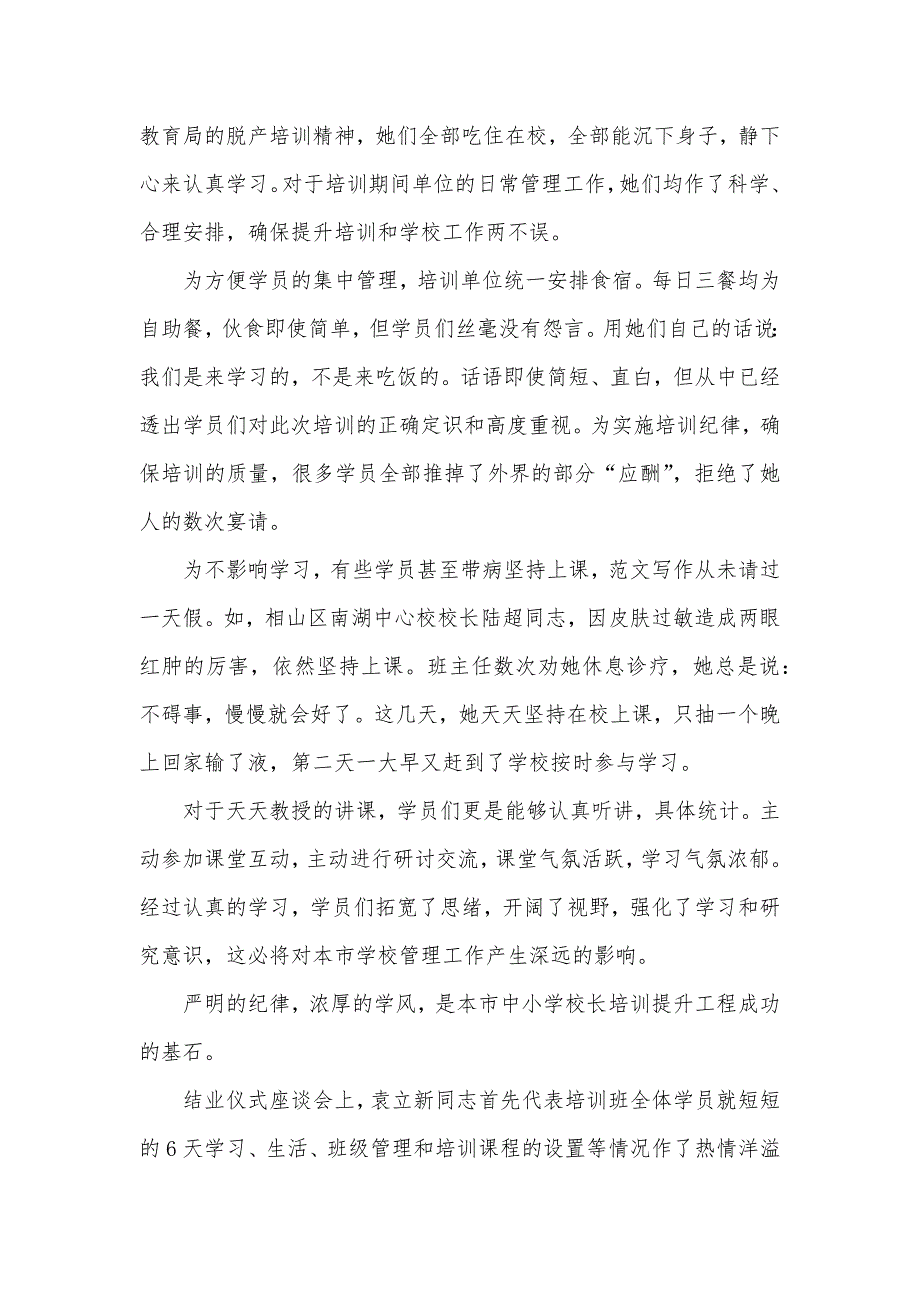 教育局的脱产培训精神，她们全部吃住在校，全部能沉下身子，静下
心来认真学习。对于培训期间单位的日常管理工作，她们均作了科学、
合理安排，确保提升培训和学校工作两不误。
为方便学员的集中管理，培训单位统一安排食宿。每日三餐均为
自助餐，伙食即使简单，但学员们丝毫没有怨言。用她们自己的话说：
我们是来学习的，不是来吃饭的。话语即使简短、直白，但从中已经
透出学员们对此次培训的正确定识和高度重视。为实施培训纪律，确
保培训的质量，很多学员全部推掉了外界的部分“应酬”，拒绝了她
人的数次宴请。
为不影响学习，有些学员甚至带病坚持上课，范文写作从未请过
一天假。如，相山区南湖中心校校长陆超同志，因皮肤过敏造成两眼
红肿的厉害，依然坚持上课。班主任数次劝她休息诊疗，她总是说：
不碍事，慢慢就会好了。这几天，她天天坚持在校上课，只抽一个晚
上回家输了液，第二天一大早又赶到了学校按时参与学习。
对于天天教授的讲课，学员们更是能够认真听讲，具体统计。主
动参加课堂互动，主动进行研讨交流，课堂气氛活跃，学习气氛浓郁。
经过认真的学习，学员们拓宽了思绪，开阔了视野，强化了学习和研
究意识，这必将对本市学校管理工作产生深远的影响。
严明的纪律，浓厚的学风，是本市中小学校长培训提升工程成功
的基石。
结业仪式座谈会上，袁立新同志首先代表培训班全体学员就短短
的 6 天学习、生活、班级管理和培训课程的设置等情况作了热情洋溢